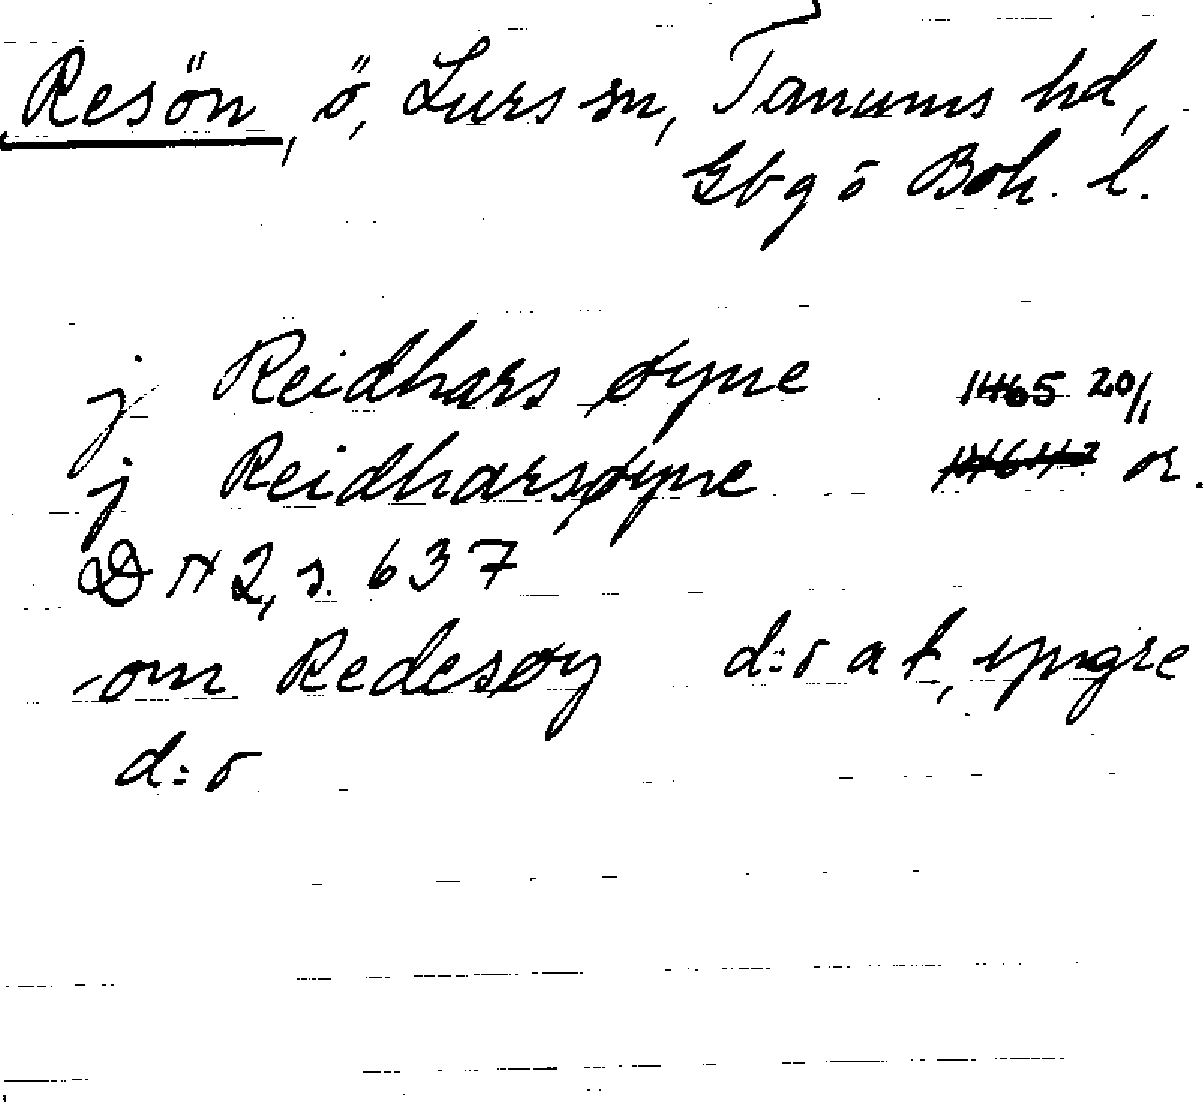 Resön, ö, Lurs sn, Tanums hd,
Gbg o Boh. l.
j Reidhars øyne 1465 20/11
j Reidharsøyne or.
DN 2, s. 637
om Redesøy d:o a t, yngre
d:o